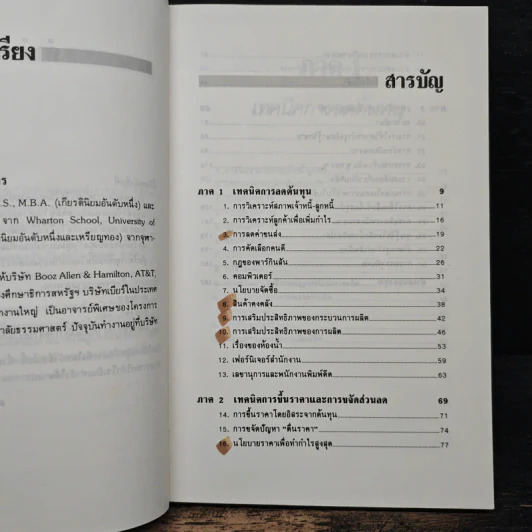 เรียง
ร
.S., M.B.A. (เกียรตินิยมอันดับหนึ่ง) และ
จาก Wharton School, University of
นิยมอันดับหนึ่งและเหรียญทอง) จากจุฬา-
ห้บริษัท Booz Allen & Hamilton, AT&T,
งศึกษาธิการสหรัฐฯ บริษัทเบียร์ในประเทศ
งานใหญ่ เป็นอาจารย์พิเศษของโครงการ
าลัยธรรมศาสตร์ ปัจจุบันทำงานอยู่ที่บริษัท
สารบัญ
ภาค 1 เทคนิคการลดต้นทุน 9
1. การวิเคราะห์สภาพเจ้าหนี้-ลูกหนี้ 11
2. การวิเคราะห์ลูกค้าเพื่อเพิ่มกำไร 16
3. การลดค่าขนส่ง 19
4. การคัดเลือกคนดี 22
5. กฎของพาร์กินสัน 26
6. คอมพิวเตอร์ 31
7. นโยบายจัดซื้อ 34
8. สินค้าคงคลัง 38
9. การเสริมประสิทธิภาพของกระบวนการผลิต 42
10. การเสริมประสิทธิภาพของการผลิต 46
11. เรื่องของห้องน้ำ 53
12. เฟอร์นิเจอร์สำนักงาน 59
13. เลขานุการและพนักงานพิมพ์ดีด 63
ภาค 2 เทคนิคการขึ้นราคาและการขจัดส่วนลด 69
14. การขึ้นราคาโดยอิสระจากต้นทุน 71
15. การขจัดปัญหา "ตื่นราคา" 74
16. นโยบายราคาเพื่อทำกำไรสูงสุด 77